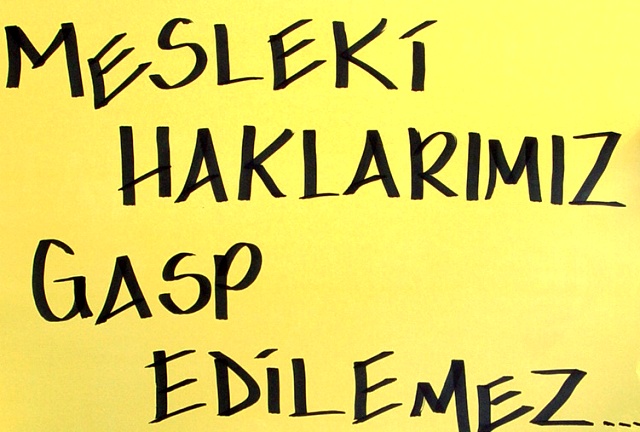 MESLEKİ
HAKLARIMIZ
GASP
EDİLEMEZ...